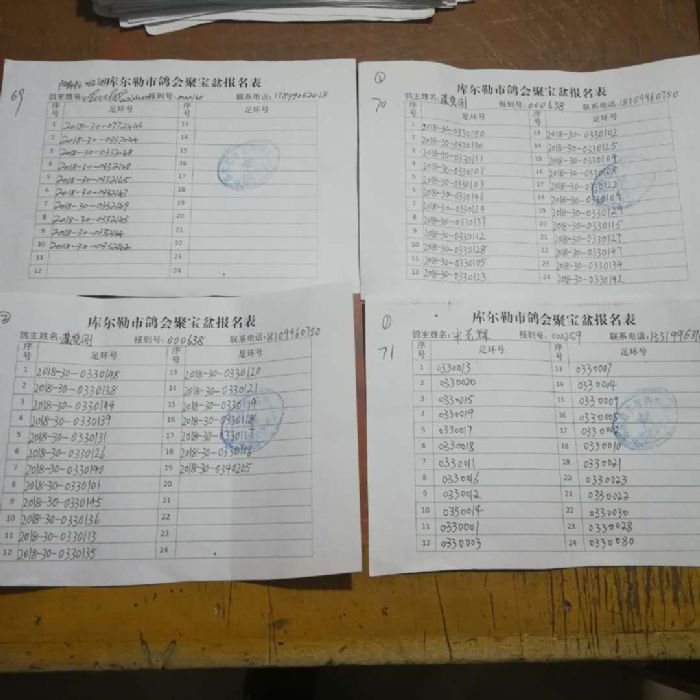 69
库尔勒市鸽会聚宝盆报名表
鸽主姓名: 报到号: 联系电话:
序号 足环号 序号 足环号
1 13
2 14
3 2018-30-0332148 15
4 16
5 2018-30-0332145 17
6 2018-30-0332147 18
7 2018-30-0332149 19
8 2018-30-0332143 20
9 21
10 2018-30-0332142 22
11 23
12 24
①
70
库尔勒市鸽会聚宝盆报名表
鸽主姓名: 报到号:000638 联系电话:18109960750
序号 足环号 序号 足环号
1 2018-30-0330150 13 2018-30-0330102
2 2018-30-0330130 14 2018-30-0330125
3 2018-30-0330111 15 2018-30-0330109
4 2018-30-0330107 16
5 2018-30-0330103 17
6 2018-30-0330146 18
7 19 2018-30-0330129
8 2018-30-0330137 20 2018-30-0330115
9 2018-30-0330112 21 2018-30-0330127
10 2018-30-0330128 22 2018-30-0330147
11 2018-30-0330105 23 2018-30-0330134
12 2018-30-0330123 24 2018-30-0330142
库尔勒市鸽会聚宝盆报名表
鸽主姓名: 报到号:000638 联系电话:18109960750
序号 足环号 序号 足环号
1 13 2018-30-0330120
2 2018-30-0330138 14 2018-30-0330121
3 2018-30-0330144 15 2018-30-0330119
4 2018-30-0330139 16 2018-30-0330118
5 2018-30-0330131 17
6 2018-30-0330126 18 2018-30-0330116
7 2018-30-0330140 19 2018-30-0340205
8 2018-30-0330101 20
9 2018-30-0330145 21
10 2018-30-0330136 22
11 2018-30-0330113 23
12 2018-30-0330135 24
①
71
库尔勒市鸽会聚宝盆报名表
鸽主姓名: 报到号:000259 联系电话:
序号 足环号 序号 足环号
1 0330013 13 0330007
2 0330020 14 0330004
3 0330015 15 0330009
4 0330019 16 0330005
5 0330017 17
6 0330018 18 0330010
7 0330011 19 0330021
8 0330016 20 0330023
9 0330012 21 0330022
10 0330014 22 0330030
11 0330001 23 0330028
12 0330003 24 0330080